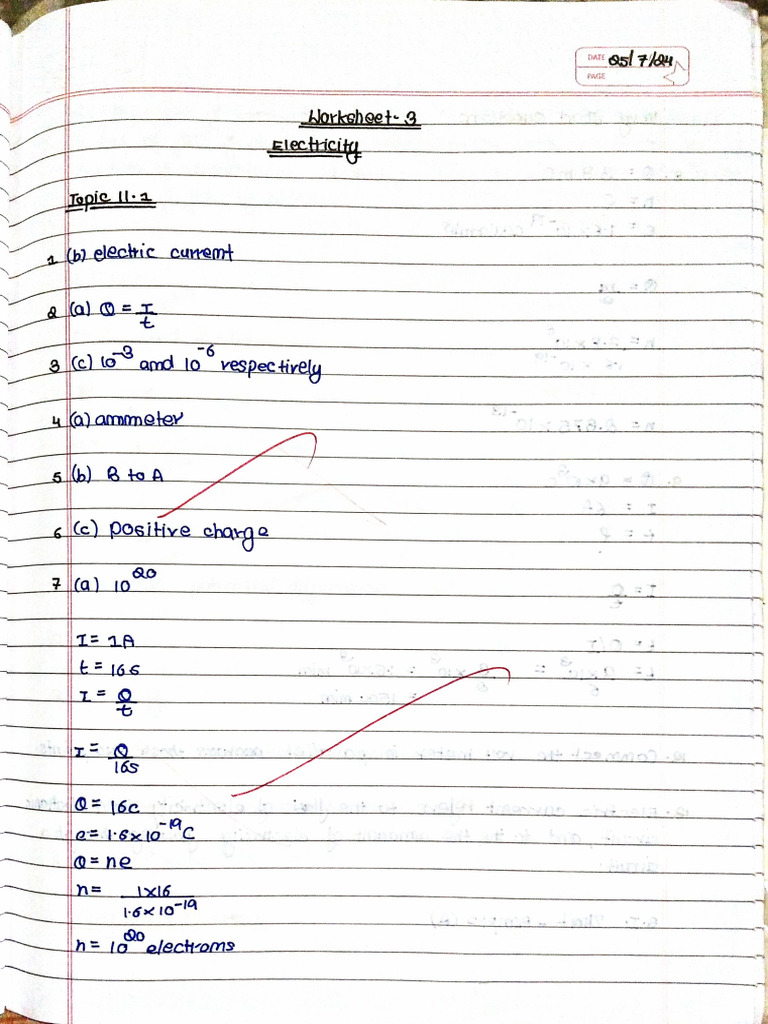 DATE 25/7/24
PAGE
Worksheet-3
Electricity
Topic 11.1
1 (b) electric current
2 (a) Q = I/t
3 (c) 10⁻³ and 10⁻⁶ respectively
4 (a) ammeter
5 (b) B to A
6 (c) positive charge
7 (a) 10²⁰
I = 1A
t = 16s
I = Q/t
I = Q/16s
Q = 16c
e = 1.6×10⁻¹⁹ C
Q = ne
n = 1×16/1.6×10⁻¹⁹
n = 10²⁰ electrons